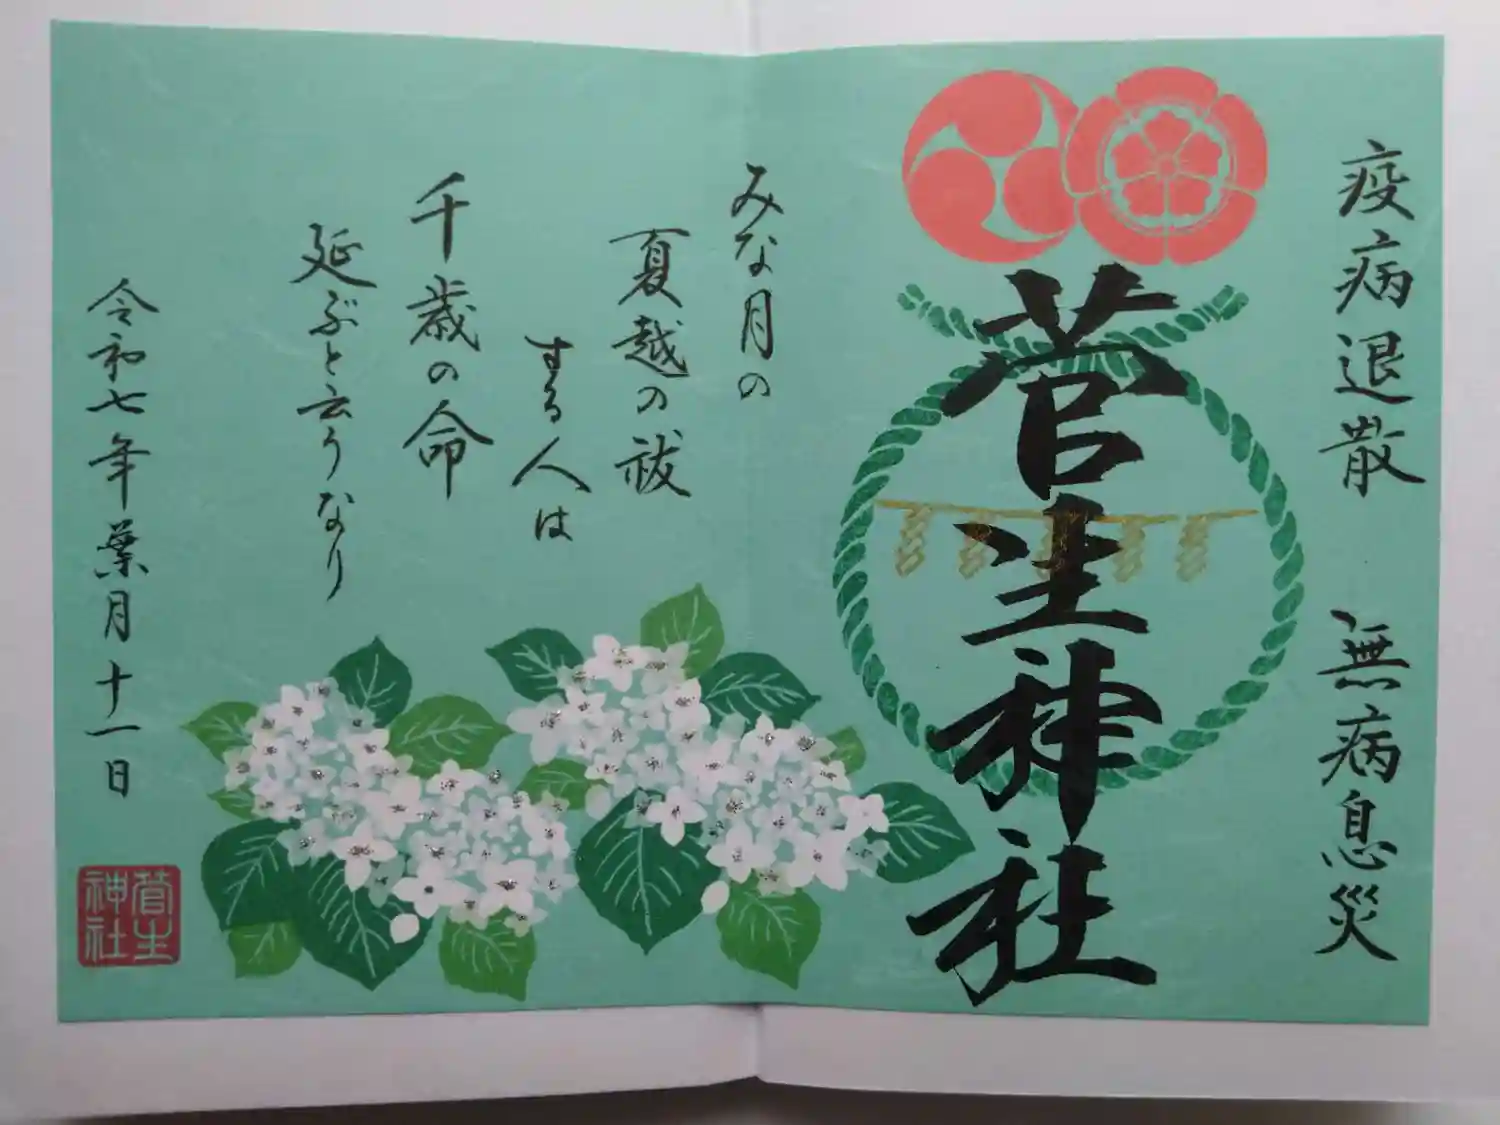 疫病退散 無病息災
菅生神社
みな月の
夏越の祓
する人は
千歳の命
延ぶと云うなり
令和七年葉月十一日
菅生
神社